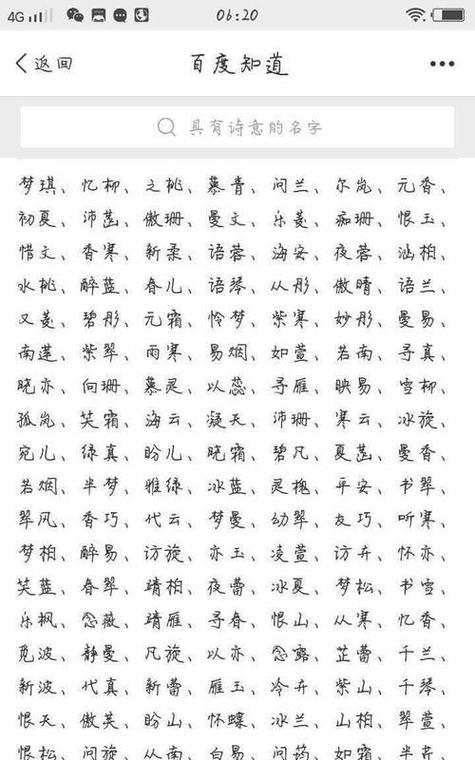 4G 06:20
返回 百度知道
具有诗意的名字
梦琪、忆柳、之桃、慕青、问兰、尔岚、元香、
初夏、沛菡、傲珊、曼文、乐菱、痴珊、恨玉、
惜文、香寒、新柔、语蓉、海安、夜蓉、涵柏、
水桃、醉蓝、春儿、语琴、从彤、傲晴、语兰、
又菱、碧彤、元霜、怜梦、紫寒、妙彤、曼易、
南莲、紫翠、雨寒、易烟、如萱、若南、寻真、
晓亦、向珊、慕灵、以蕊、寻雁、映易、雪柳、
孤岚、笑霜、海云、凝天、沛珊、寒云、冰旋、
宛儿、绿真、盼儿、晓霜、碧凡、夏菡、曼香、
若烟、半梦、雅绿、冰蓝、灵槐、平安、书翠、
翠风、香巧、代云、梦曼、幼翠、友巧、听寒、
梦柏、醉易、访旋、亦玉、凌萱、访卉、怀亦、
笑蓝、春翠、靖柏、夜蕾、冰夏、梦松、书雪、
乐枫、念薇、靖雁、寻春、恨山、从寒、忆香、
觅波、静曼、凡旋、以亦、念露、芷蕾、千兰、
新波、代真、新蕾、雁玉、冷卉、紫山、千琴、
恨天、傲芙、盼山、怀蝶、冰兰、山柏、翠萱、
恨松、问旋、从南、白易、问筠、如霜、半芹、